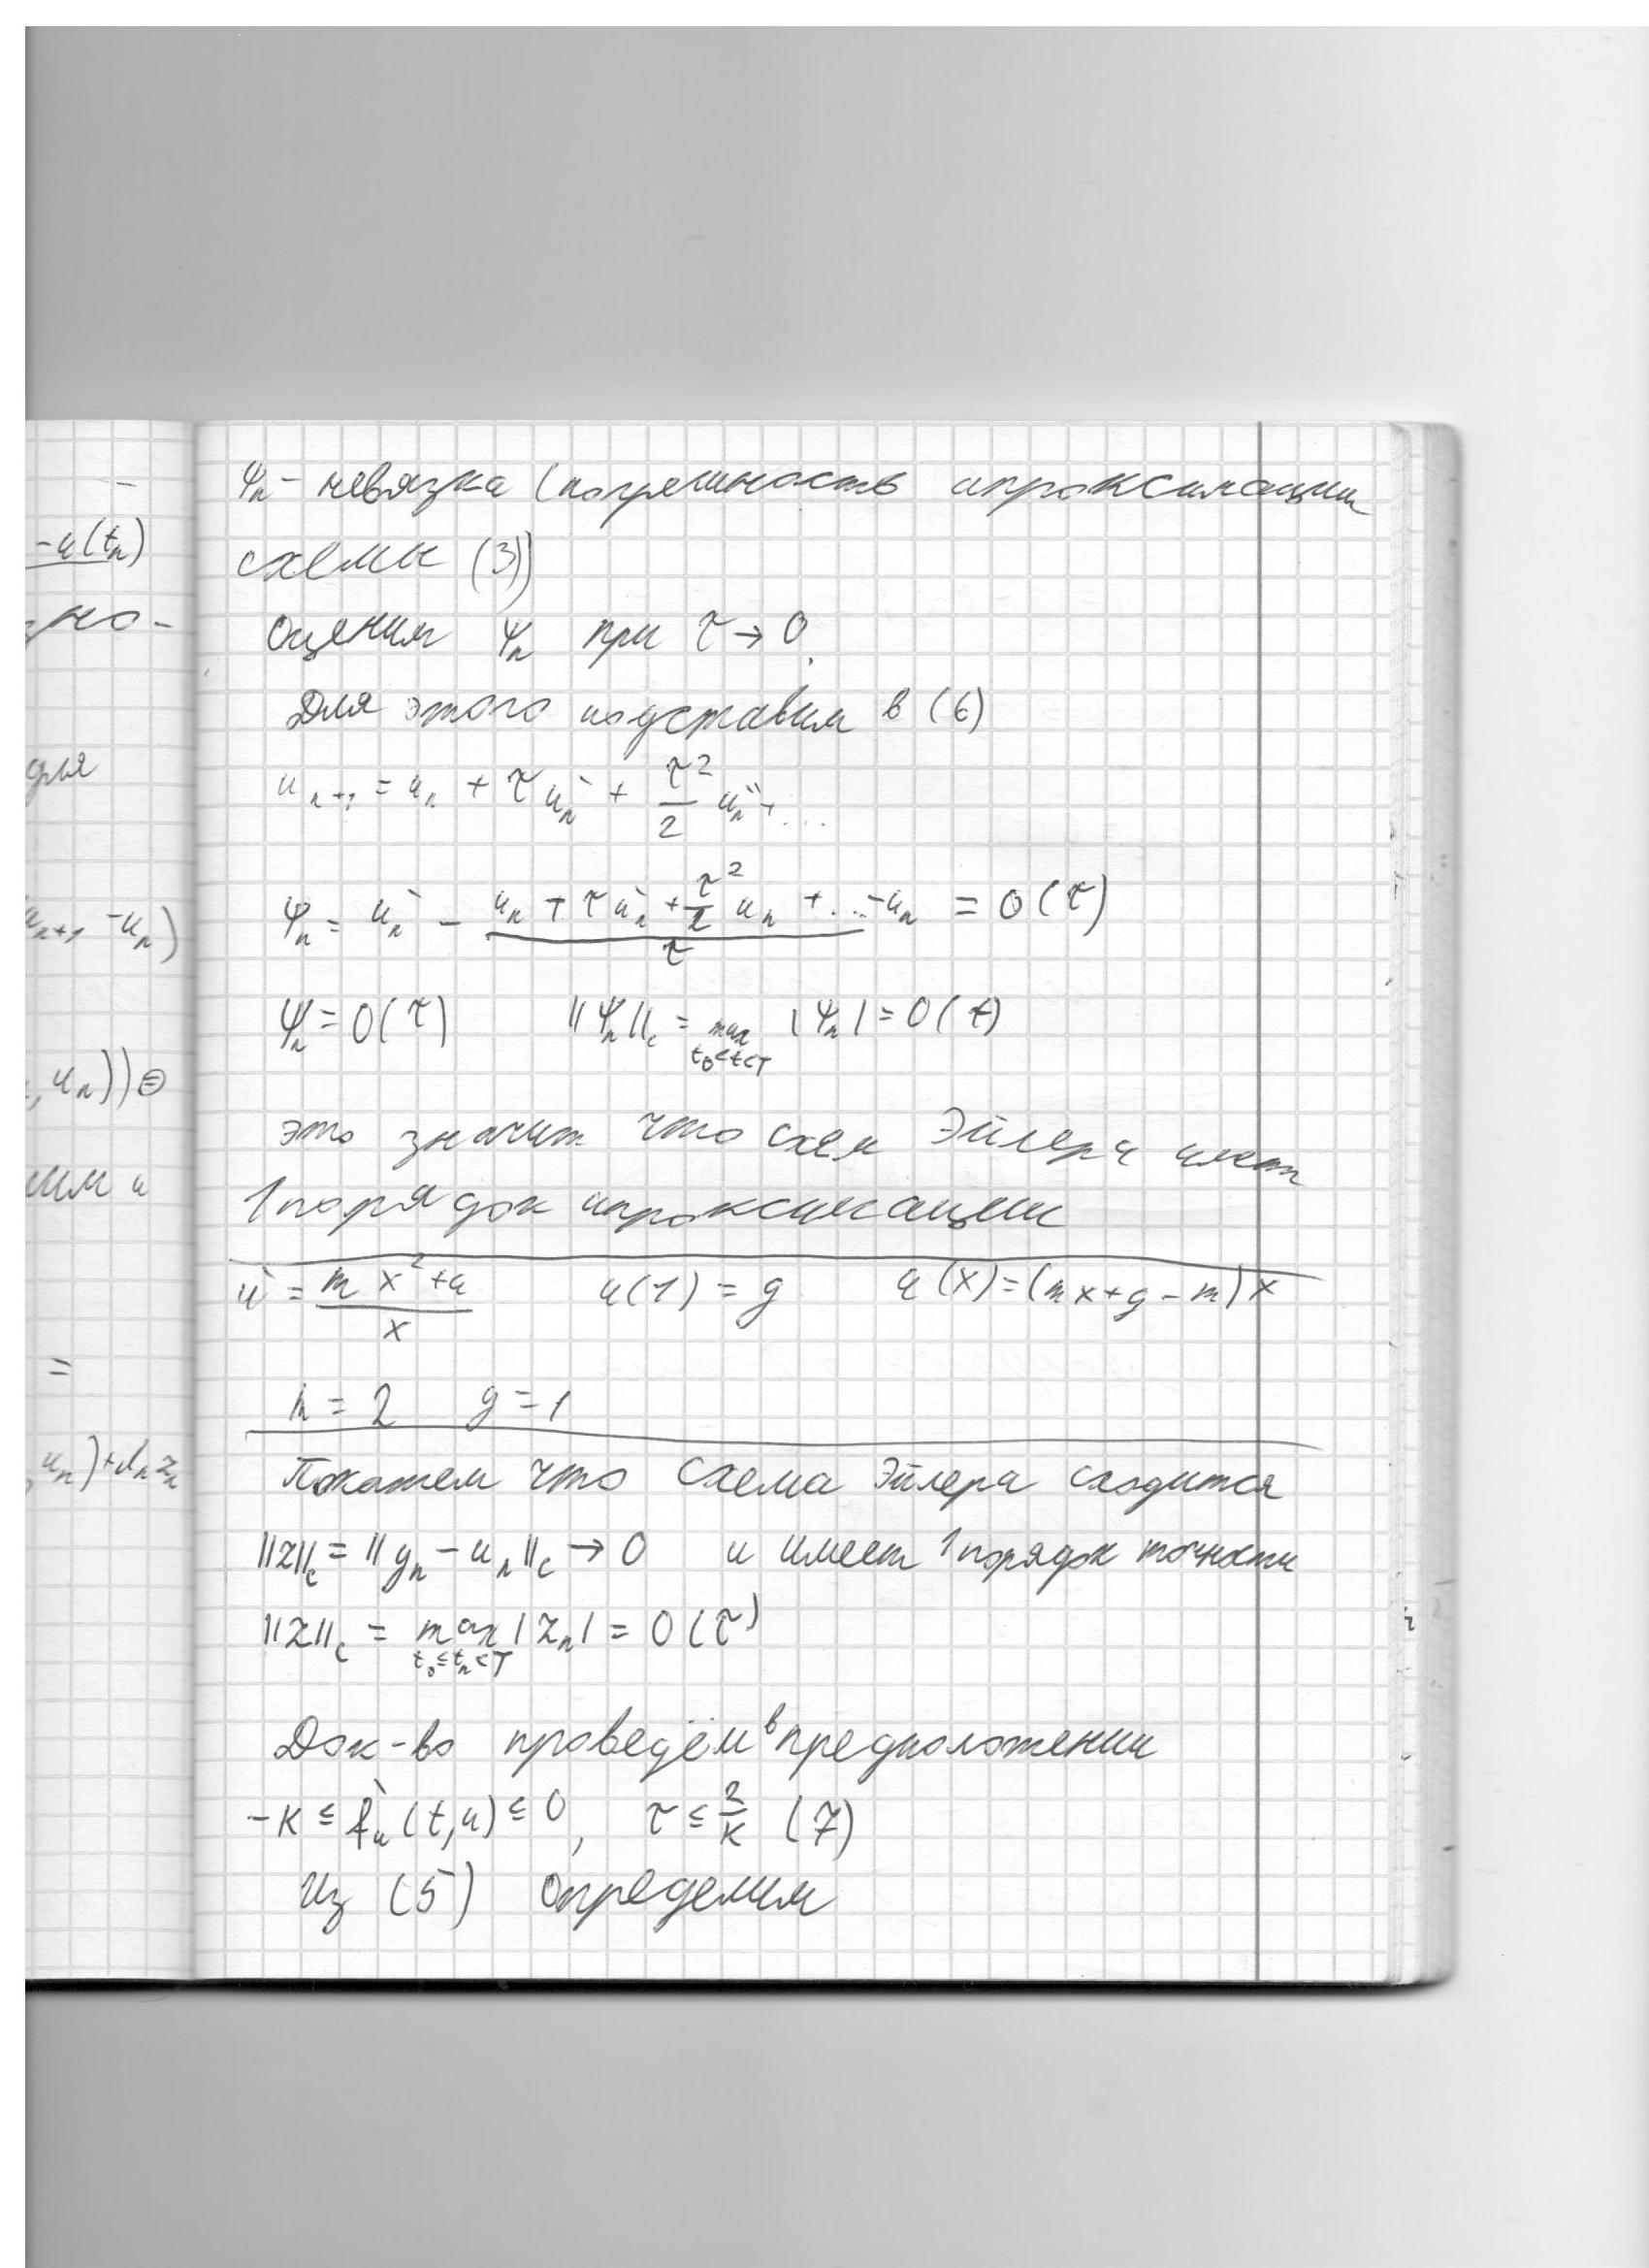 -u(tₙ)
но-
для
uₙ₊₁ - uₙ)
, uₙ)) ⊜
=
, uₙ) + αₙ zₙ
ψₙ - невязка (погрешность апроксимации
схемы (3))
Оценим ψₙ при τ → 0.
Для этого подставим в (6)
uₙ₊₁ = uₙ + τ uₙ' + τ²/2 uₙ'' + ...
ψₙ = uₙ' - (uₙ + τ uₙ' + τ²/2 uₙ + ... - uₙ)/τ = O(τ)
ψₙ = O(τ) ||ψₙ||_c = max_{t₀<t<T} |ψₙ| = O(t)
это значит что схем Эйлера имет
1 порядок апроксимации
u' = (m x² + u)/x u(1) = g u(x) = (mx + g - m) x
m = 2 g = 1
Покажем что схема Эйлера сходится
||z||_c = ||yₙ - uₙ||_c → 0 и имеет 1 порядок точности
||z||_c = max_{t₀≤tₙ<T} |zₙ| = O(τ)
Док-во проведём в предположении
-K ≤ f'ᵤ(t,u) ≤ 0, τ ≤ 2/K (7)
Из (5) определим